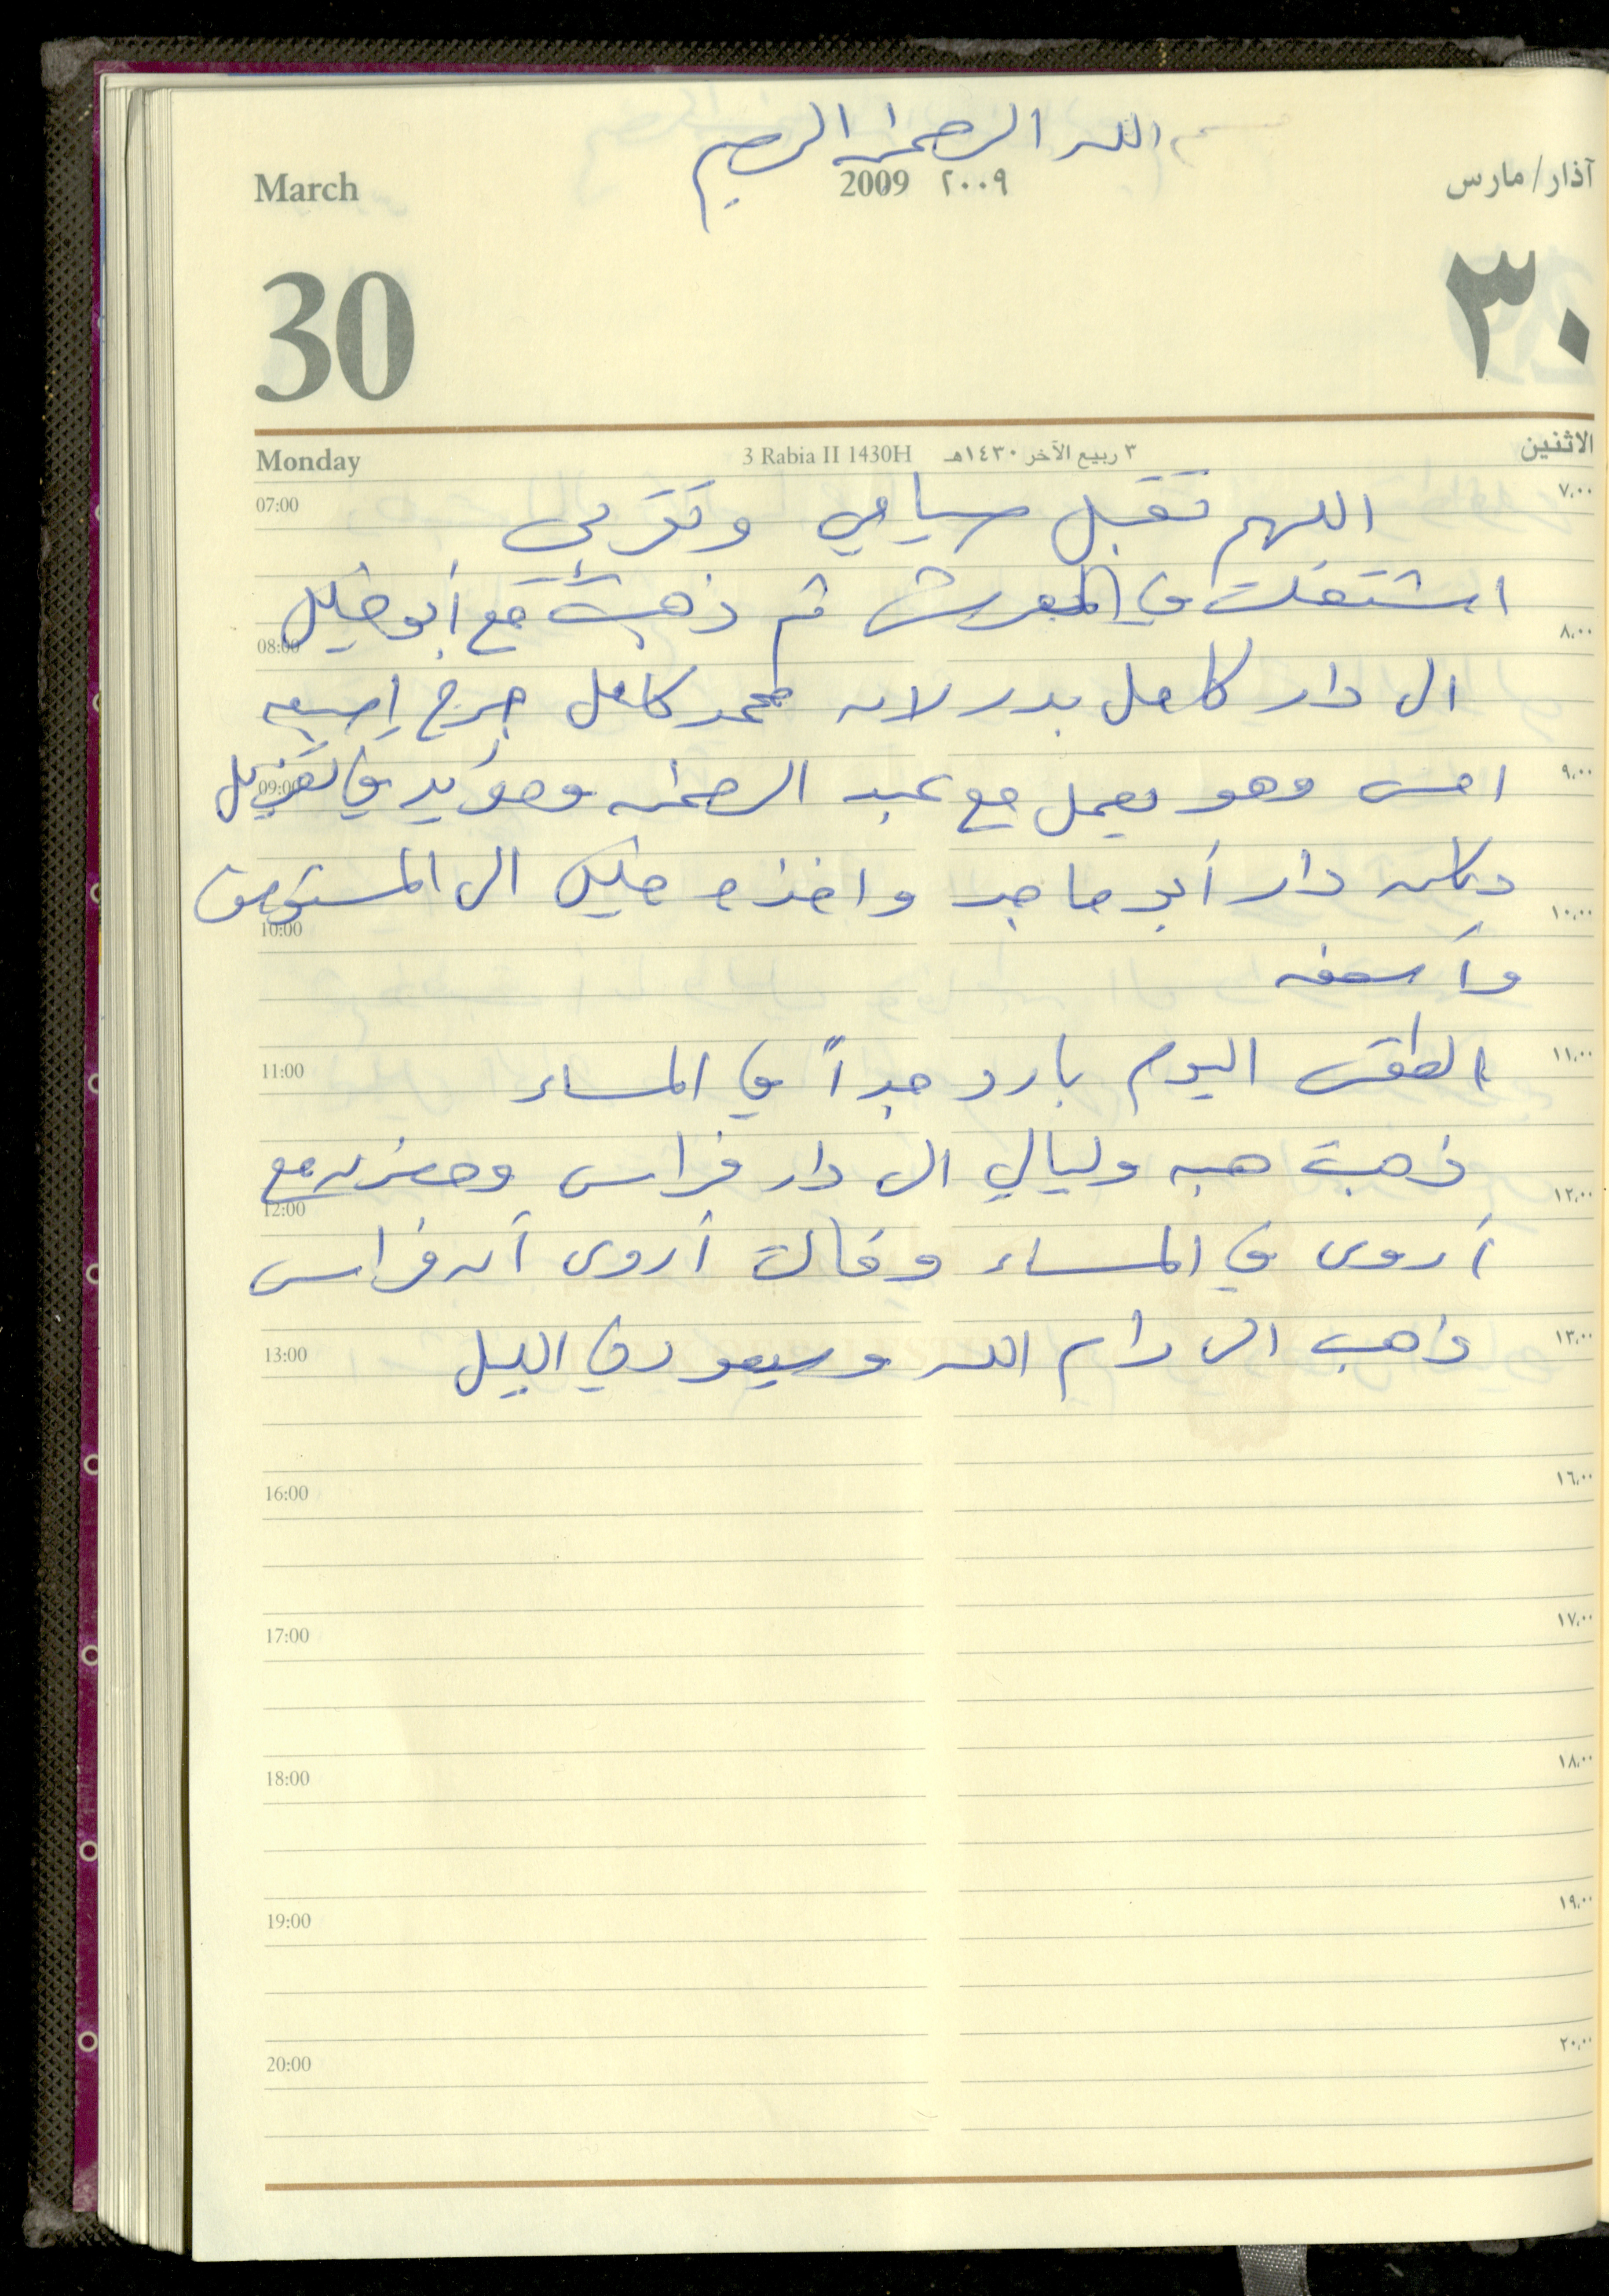 بسم الله الرحمن الرحيم
March 2009 ٢٠٠٩ آذار/مارس
30 ٣٠
Monday 3 Rabia II 1430H ٣ ربيع الآخر ١٤٣٠هـ الاثنين
07:00 اللهم تقبل صيامي وتقربي ٧,٠٠
اشتغلت في المعرش ثم ذهبت مع أبو خليل
08:00 ٨,٠٠
الى دار كامل بدر لان محمد كامل جرح إصبعه
09:00 امس وهو يعمل مع عبد الرحمن ومؤيد في تنزيل ٩,٠٠
دكان دار أبو ماجد واخذه خليل الى المستوصف
10:00 ١٠,٠٠
وأسعفه
11:00 الطقس اليوم بارد جداً في المساء ١١,٠٠
ذهبت هبه وليالي الى دار فراس وحضرن مع
12:00 ١٢,٠٠
أروى في المساء وقالت أروى أن فراس
13:00 ذاهب الى رام الله وسيعود في الليل ١٣,٠٠
16:00 ١٦,٠٠
17:00 ١٧,٠٠
18:00 ١٨,٠٠
19:00 ١٩,٠٠
20:00 ٢٠,٠٠